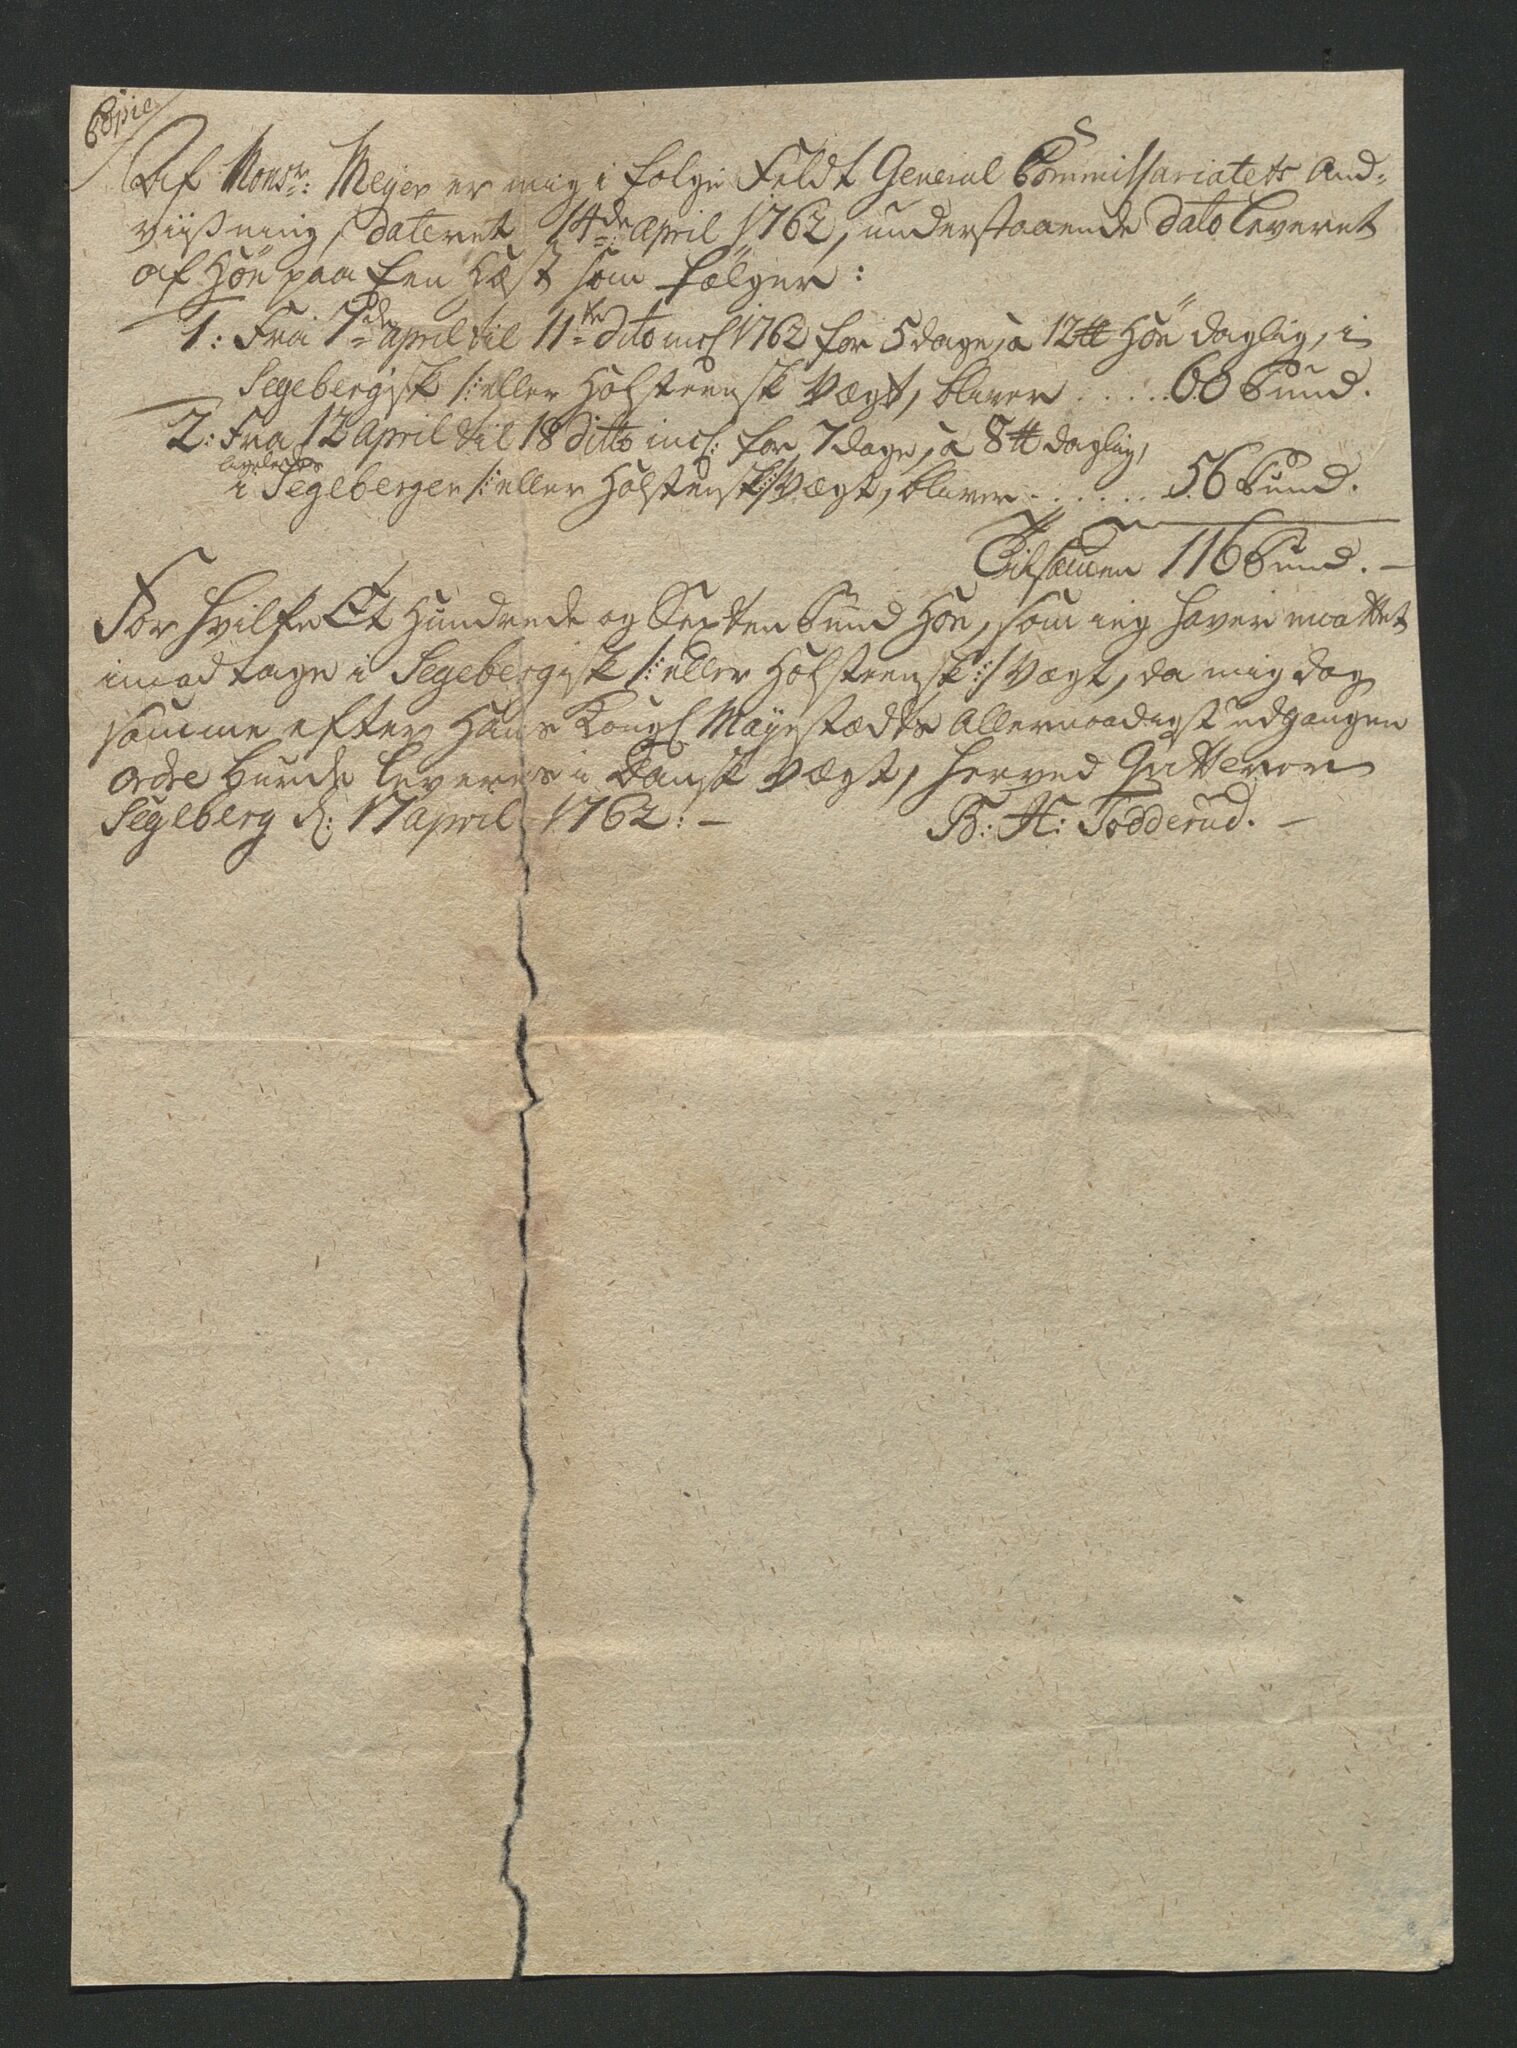 Copie
Af Monsr: Meyer er mig i følge Feldt General Commissariatets And-
viißning, dateret 14de April 1762, understaaende dato leveret
af Höe paa Een Hæst som følger:
1: Fra 7de april til 11te dito incl 1762 for 5 dage, a 12 ℔ Höe daglig, i
Segebergisk /: eller Holsteensk Vægt, bliver ..... 60 Pund.
2: Fra 12 april til 18 ditto incl: for 7 dage, a 8 ℔ daglig,
ligeledes
i Segeberger /: eller Holstensk :/ Vægt, bliver ...... 56 Pund.
Tilsamen 116 Pund. —
For hvilke Et Hundrede og Sexten Pund Höe, som ieg haver maattet
imodtage i Segebergisk /: eller Holsteensk :/ Vægt, da mig dog
samme efter Hans Kongl Mayestædts Allernaadigst udgangen
Ordre burde leveres i Dansk Vægt, herved Qvitterer
Segeberg d: 17 april 1762: —
B: H: Tödderud. —